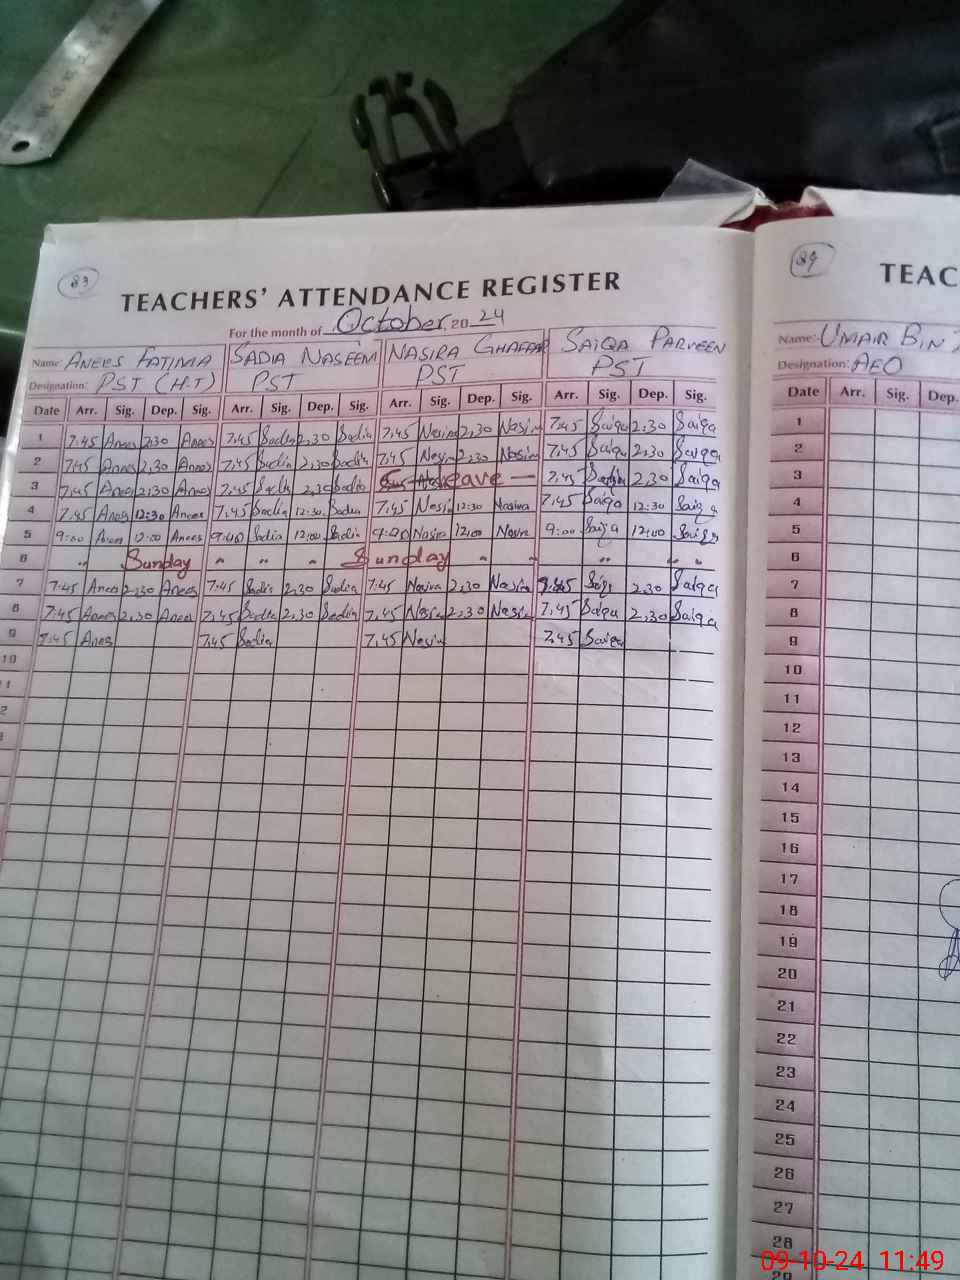 83
TEACHERS' ATTENDANCE REGISTER
For the month of October, 2024
Name: ANEES FATIMA SADIA NASEEM NASIRA GHAFAR SAIQA PARVEEN
Designation: PST (H.T) PST PST PST
Date Arr. Sig. Dep. Sig. Arr. Sig. Dep. Sig. Arr. Sig. Dep. Sig. Arr. Sig. Dep. Sig.
1 7.45 Anees 2.30 Anees 7.45 Sadia 2.30 Sadia 7.45 Nasira 2.30 Nasira 7.45 Saiqa 2.30 Saiqa
2 7.45 Anees 2.30 Anees 7.45 Sadia 2.30 Sadia 7.45 Nasira 2.30 Nasira 7.45 Saiqa 2.30 Saiqa
3 7.45 Anees 2.30 Anees 7.45 Sadia 2.30 Sadia Leave — 7.45 2.30 Saiqa
4 7.45 Anees 12:30 Anees 7.45 Sadia 12:30 Sadia 7.45 Nasira 12:30 Nasira 7.45 Saiqa 12:30 Saiqa
5 9:00 Anees 12:00 Anees 9:00 Sadia 12:00 Sadia 9:00 Nasira 12:00 Nasira 9:00 Saiqa 12:00 Saiqa
6 " Sunday " " " Sunday " " " " "
7 7:45 Anees 2:30 Anees 7:45 Sadia 2:30 Sadia 7:45 Nasira 2:30 Nasira 7:45 Saiqa 2:30 Saiqa
8 7:45 Anees 2:30 Anees 7.45 Sadia 2:30 Sadia 7.45 Nasira 2:30 Nasira 7.45 Saiqa 2:30 Saiqa
9 7:45 Anees 7.45 Sadia 7.45 Nasira 7.45 Saiqa
10
11
12
84
TEAC
Name: UMAIR BIN
Designation: AEO
Date Arr. Sig. Dep.
1
2
3
4
5
6
7
8
9
10
11
12
13
14
15
16
17
18
19
20
21
22
23
24
25
26
27
28
29
09-10-24 11:49